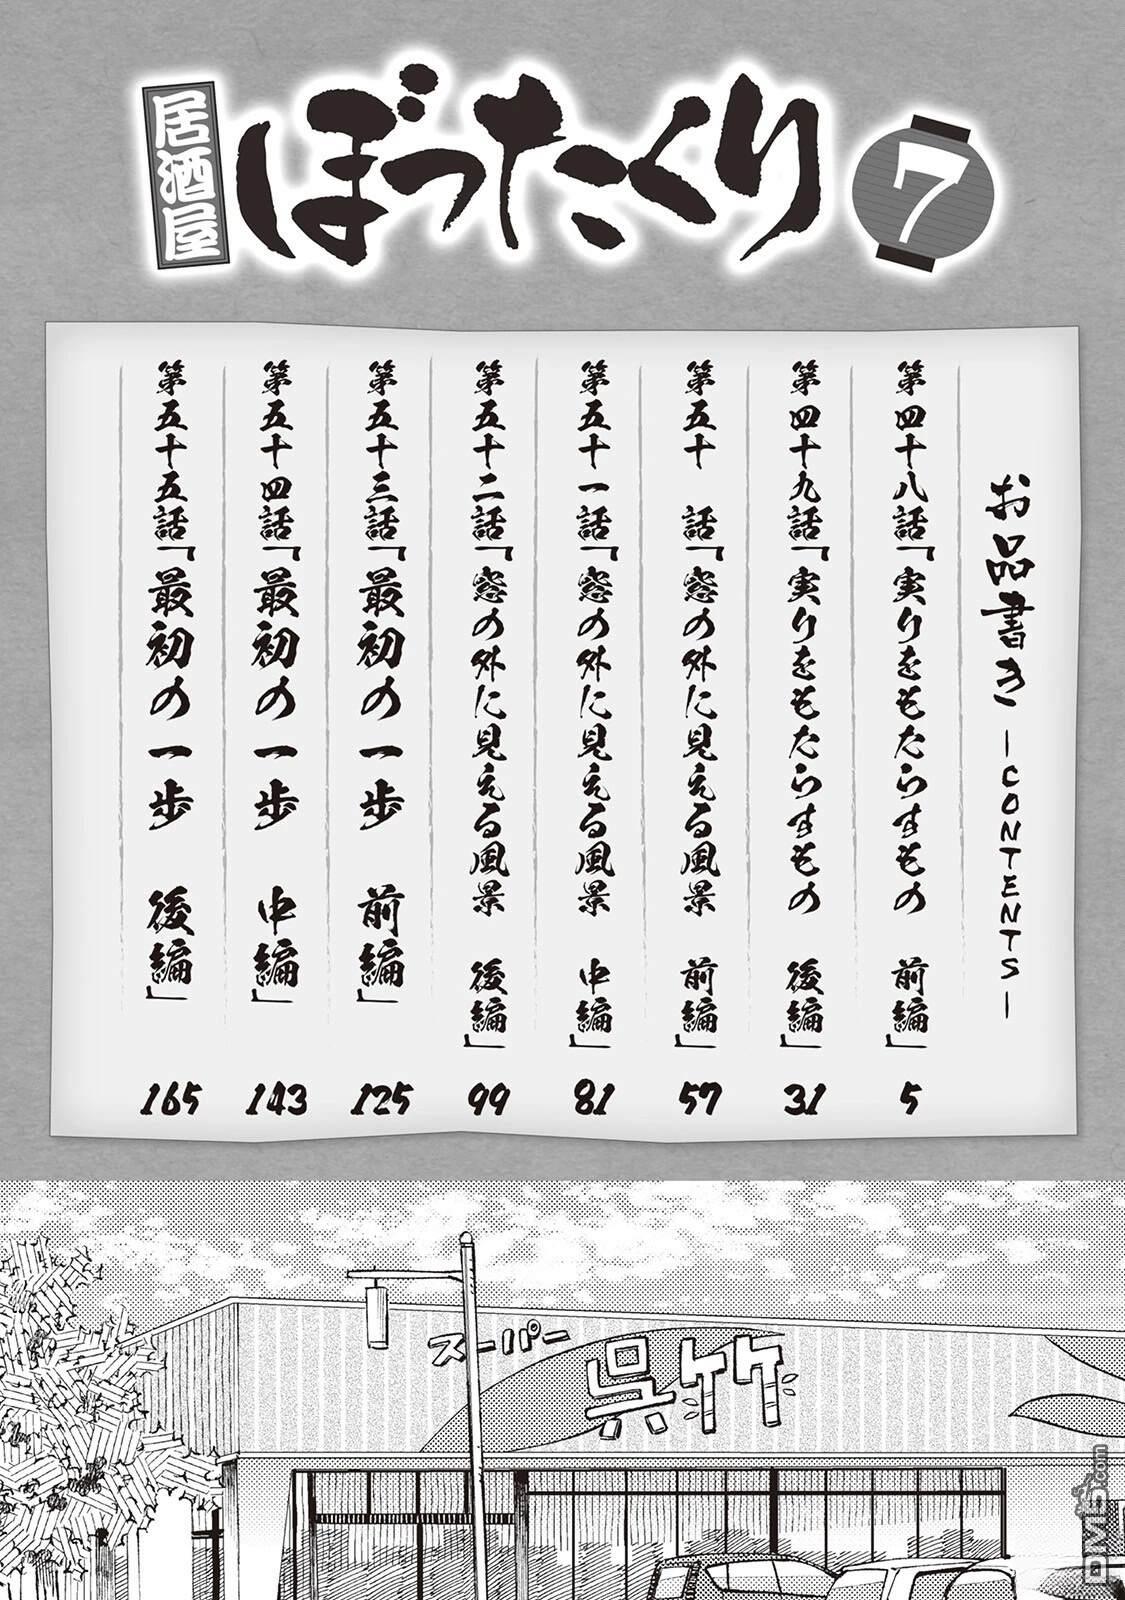 居酒屋
ぼったくり
7
お品書き ―CONTENTS―
第四十八話「実りをもたらすもの 前編」 5
第四十九話「実りをもたらすもの 後編」 31
第五十 話「窓の外に見える風景 前編」 57
第五十一話「窓の外に見える風景 中編」 81
第五十二話「窓の外に見える風景 後編」 99
第五十三話「最初の一歩 前編」 125
第五十四話「最初の一歩 中編」 143
第五十五話「最初の一歩 後編」 165
スーパー
呉竹
DMB.com